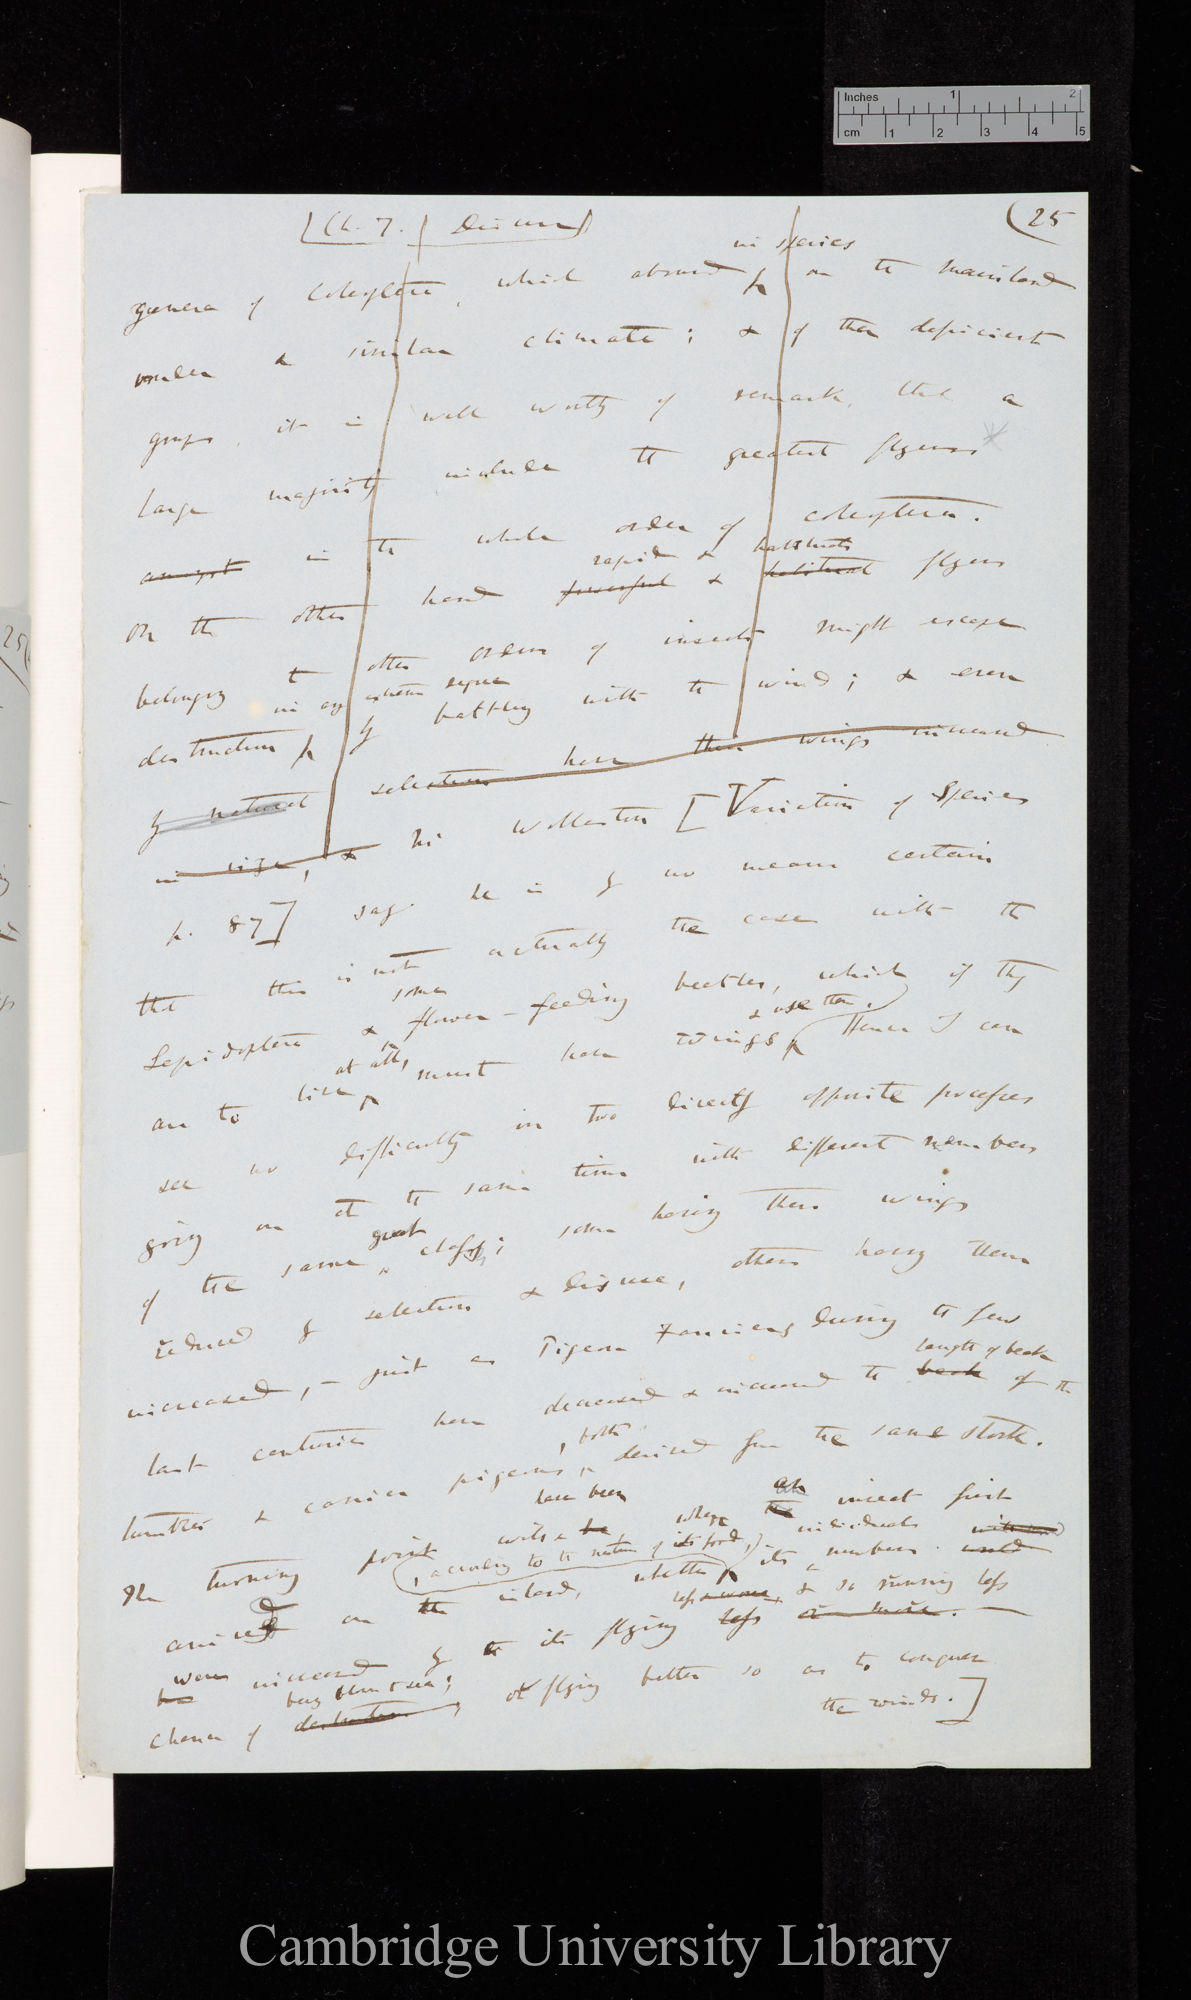 Inches 1 2
cm 1 2 3 4 5
25
(Ch. 7.) Disuse)
in species
genera of Coleoptera, which abound on the mainland
under a similar climate; & of these deficient
groups, it is well worthy of remark, that a
large majority include the greatest flyers
amongst in the whole order of coleoptera.
rapid & habitual
On the other hand powerful & habitual flyers
belonging to other orders of insects might escape
in any extreme degree
destruction by battling with the wind; & even
by natural selection have their wings increased
in size, & Mr Wollaston [Variation of Species
p. 87] says he is by no means certain
that this is not actually the case with the
some
Lepidoptera & flower-feeding beetles, which if they
at all, & use them.
are to live must have wings Hence I can
see no difficulty in two directly opposite processes
going on at the same time with different members
great
of the same class; some having their wings
reduced by selection & disuse, others having them
increased, – just as Pigeon Fanciers during the few
length of beak
last centuries have decreased & increased the beak of the
, both
tumbler & carrier pigeons, derived from the same stock.
have been an
The turning point would be when the insect first
, according to the nature of its food,) individuals
arrived on the island, whether its numbers would
less
were increased by its flying less or more. & so running less
being blown to sea;
chance of destruction, or flying better so as to conquer
the winds.]
25
Cambridge University Library